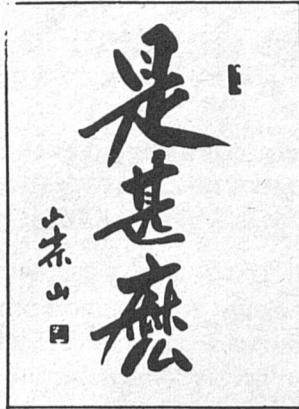 是甚麽
崇山